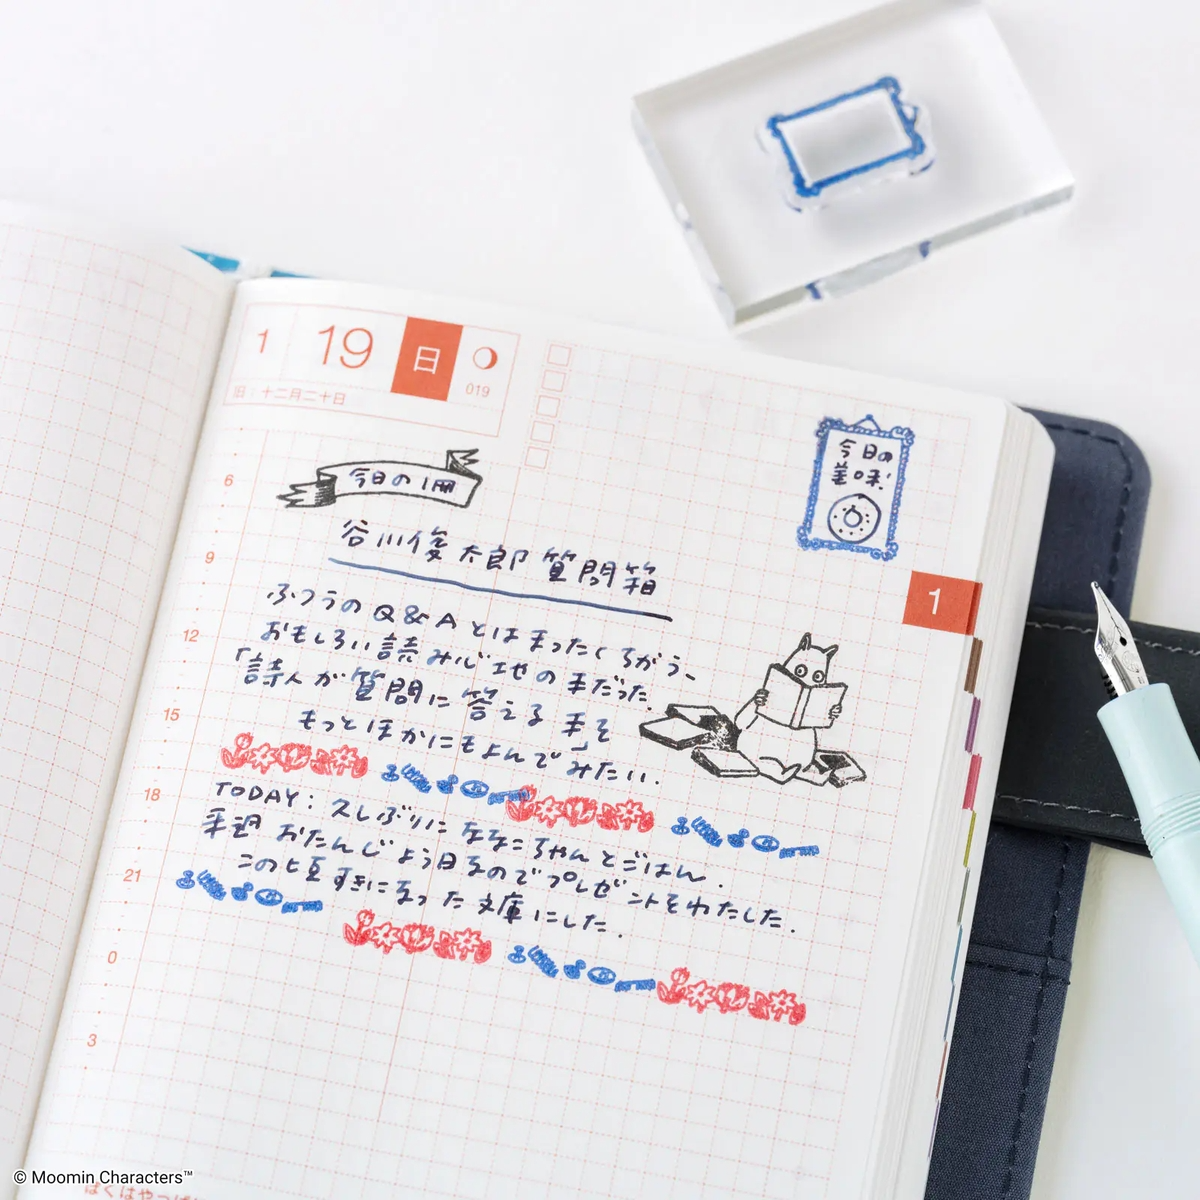 1 19 日
019
旧: 十二月二十日
今日の1冊
今日の
美味!
谷川俊太郎質問箱
ふつうのQ&Aとはまったくちがう、
おもしろい読み心地の本だった。
「詩人が質問に答える本」を
もっとほかにもよんでみたい.
TODAY: 久しぶりにななこちゃんとごはん.
来週おたんじょう日なのでプレゼントをわたした.
この頃すきになった文庫にした.
6
9
12
15
18
21
0
3
1
© Moomin Characters™